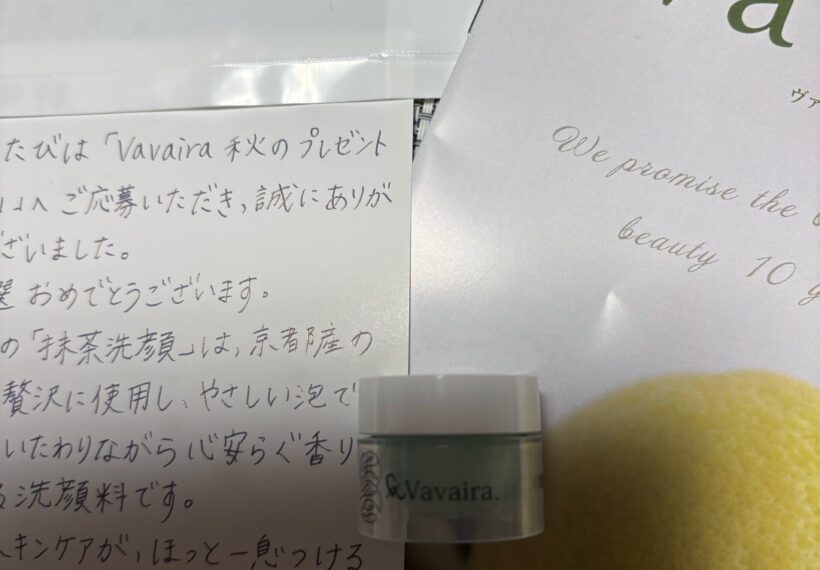 たびは「Vavaira 秋のプレゼント
」へご応募いただき、誠にありが
ございました。
選 おめでとうございます。
の「抹茶洗顔」は、京都産の
贅沢に使用し、やさしい泡で
いたわりながら心安らぐ香り
る洗顔料です。
スキンケアが、ほっと一息つける
va
ヴァ
We promise the
beauty 10
Vavaira.